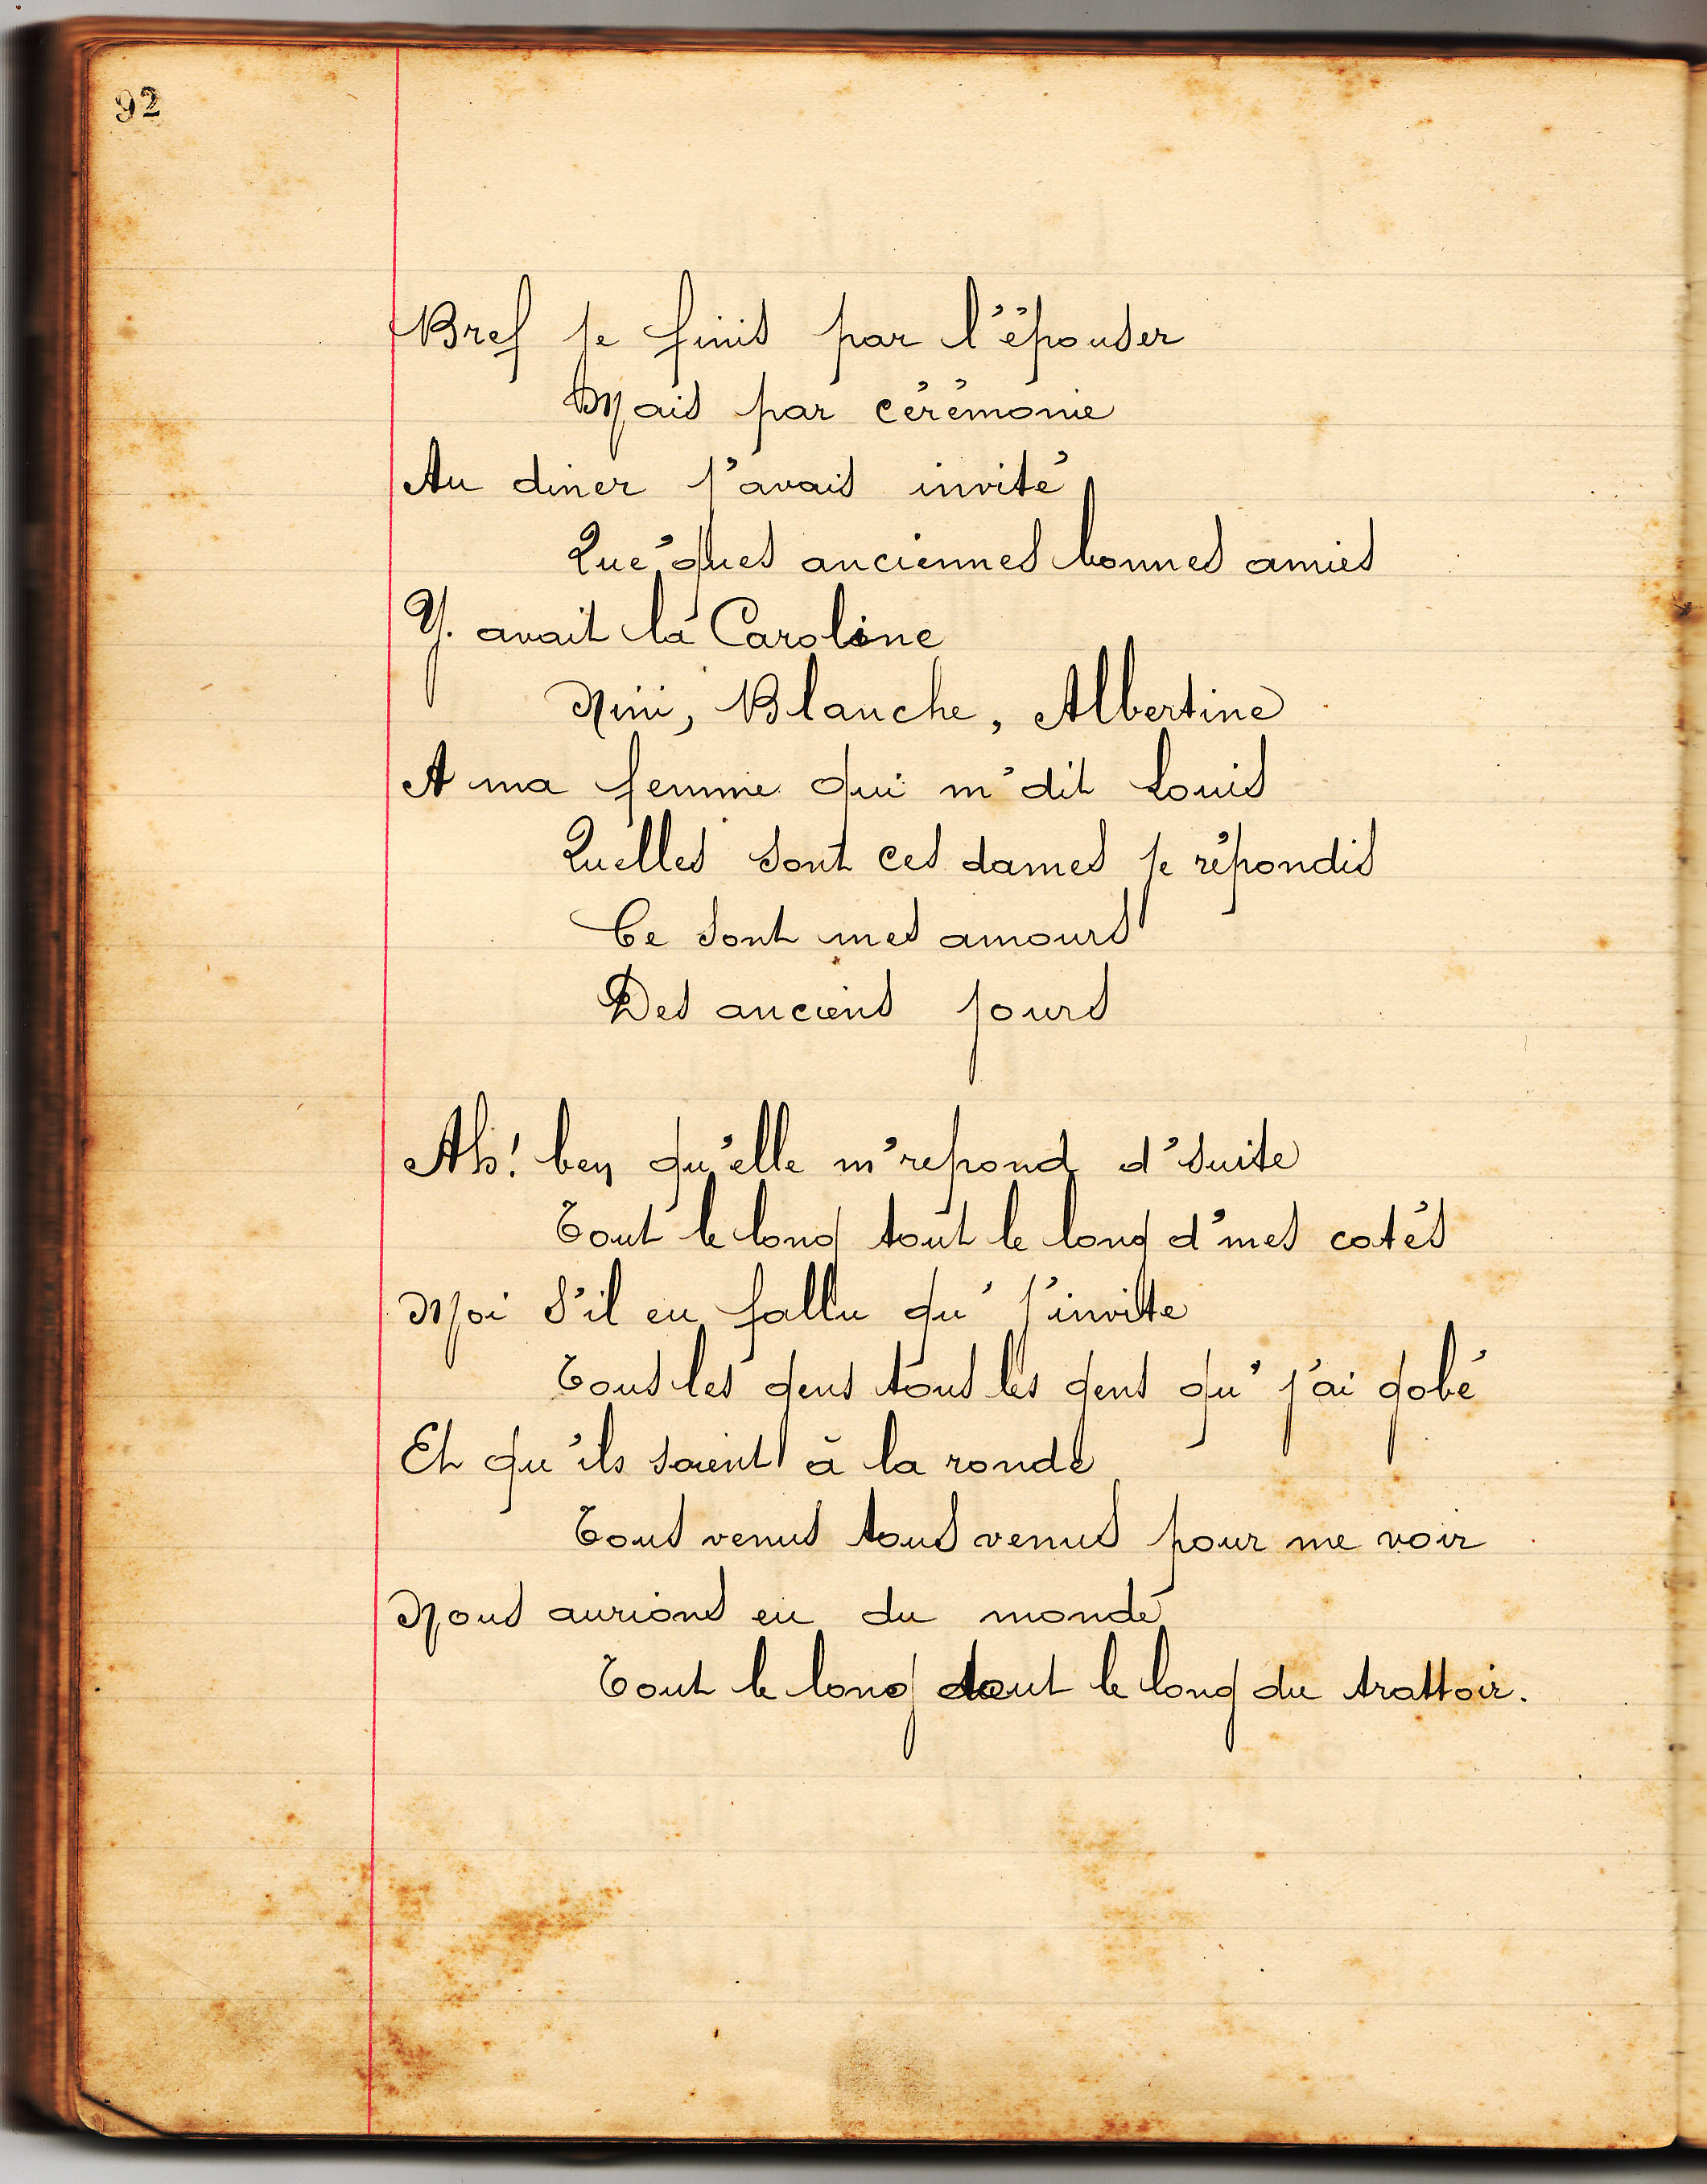 92
Bref je finis par l'épouser
Mais par cérémonie
Au diner j'avais invité
Que'ques anciennes bonnes amies
Y. avait là Caroline
Nini, Blanche, Albertine
A ma femme qui m'dit Louis
Quelles sont ces dames je répondis
Ce sont mes amours
Des anciens jours
Ah! ben qu'elle m'repond d'suite
Tout le long tout le long d'mes cotés
Moi s'il eu fallu qu' j'invitte
Tous les gens tous les gens qu' j'ai gobé
Et qu'ils soient à la ronde
Tous venus tous venus pour me voir
Nous aurions eu du monde
Tout le long tout le long du trattoir.